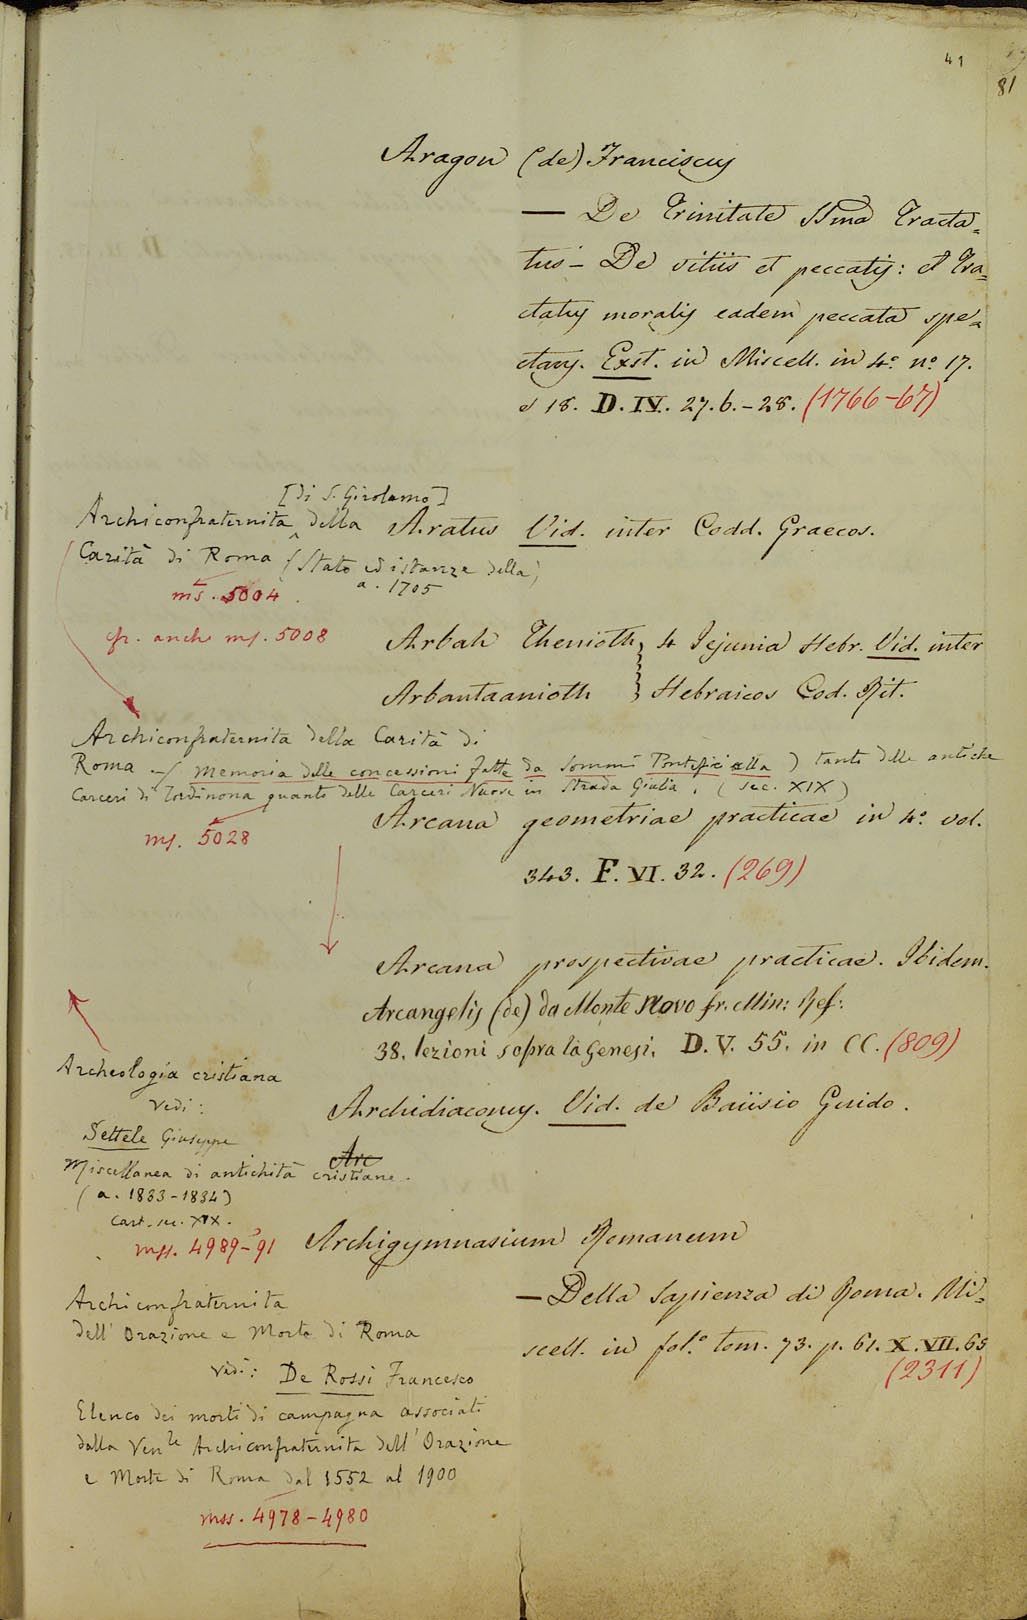 41
81
Aragon (de) Franciscus
— De Trinitate SSma Tracta=
tus – De vitiis et peccatis: et Tra=
ctatus moralis eadem peccata spe=
ctans. Exst. in Miscell. in 4.º n.º 17.
e 18. D. IV. 27. b. – 28. (1766–67)
[di S. Girolamo]
Archiconfraternita della
Carità di Roma (Stato ed istanze della)
a. 1705
ms. 5004.
cfr. anche ms. 5008
Aratus Vid. inter Codd. Graecos.
Arbah Thenioth } 4 Jejunia Hebr. Vid. inter
Arbantaanioth } Hebraicos Cod. Rit.
Archiconfraternita della Carità di
Roma – (Memoria delle concessioni fatte da Sommi Pontefici alla) tanto delle antiche
Carceri di Tordinona quanto delle Carceri Nuove in Strada Giulia. (sec. XIX)
ms. 5028
Arcana geometriae practicae in 4.º vol.
343. F. VI. 32. (269)
Arcana prospectivae practicae. Ibidem.
Arcangelis (de) da Monte Novo fr. Min: Ref:
38. lezioni sopra la Genesi. D. V. 55. in CC. (809)
Archeologia cristiana
vedi:
Settele Giuseppe
Miscellanea di antichità cristiane.
(a. 1833-1834)
cart. sec. XIX.
mss. 4989-91
Archidiaconus. Vid. de Baiisio Guido.
Arc
Archigymnasium Romanum
— Della Sapienza di Roma. Mi=
scell. in fol.º tom. 73. p. 61. X. VII. 65
(2311)
Archiconfraternita
dell' Orazione e Morte di Roma
vedi: De Rossi Francesco
Elenco dei morti di campagna associati
dalla Venle Archiconfraternita dell' Orazione
e Morte di Roma dal 1552 al 1900
mss. 4978-4980